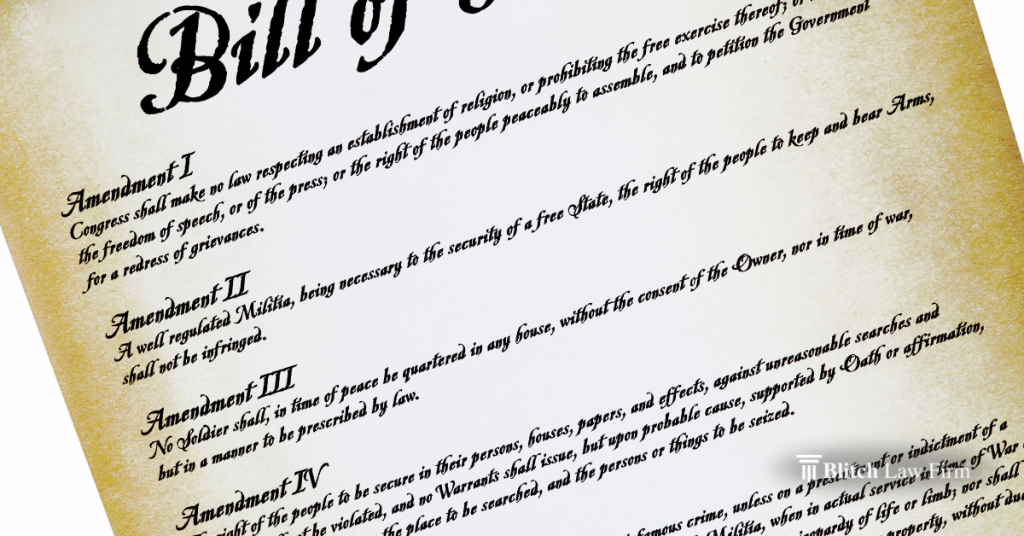 Bill of
Amendment I
Congress shall make no law respecting an establishment of religion, or prohibiting the free exercise thereof; or
the freedom of speech, or of the press; or the right of the people peaceably to assemble, and to petition the Government
for a redress of grievances.
Amendment II
A well regulated Militia, being necessary to the security of a free State, the right of the people to keep and bear Arms,
shall not be infringed.
Amendment III
No Soldier shall, in time of peace be quartered in any house, without the consent of the Owner, nor in time of war,
but in a manner to be prescribed by law.
Amendment IV
right of the people to be secure in their persons, houses, papers, and effects, against unreasonable searches and
not be violated, and no Warrants shall issue, but upon probable cause, supported by Oath or affirmation,
the place to be searched, and the persons or things to be seized.
crime, unless on a or indictment of a
Militia, when in actual service in time of War
of life or limb; nor shall
property, without
Blitch Law Firm